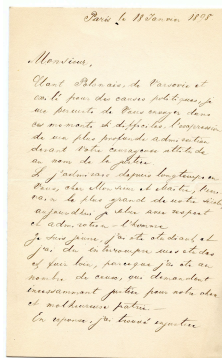 Paris, le 18 Janvier 1898
Monsieur,
Étant Polonais, de Varsovie et
exilé pour des causes politiques, je
me permets de Vous envoyer dans
ces moments si difficiles l'expression
de ma plus profonde admiration
devant Votre courageuse attitude
au nom de la justice
Si j'admirais depuis longtemps en
Vous, cher Monsieur et Maître,
le plus grand de notre siècle
aujourd'hui je salue avec respect
et admiration l'homme
Je suis jeune, j'ai été étudiant, et
j'ai dû interrompre mes études
et fuir loin, parceque j'ai été au
nombre de ceux, qui demandent
incessamment justice pour notre chère
et malheureuse patrie
En réponse, j'ai trouvé